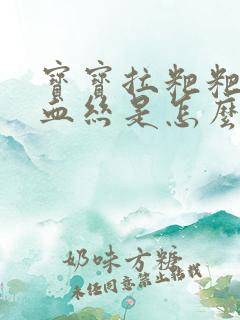 寶寶拉粑粑
血絲是怎麼
奶味方糖
未經同意禁止轉載